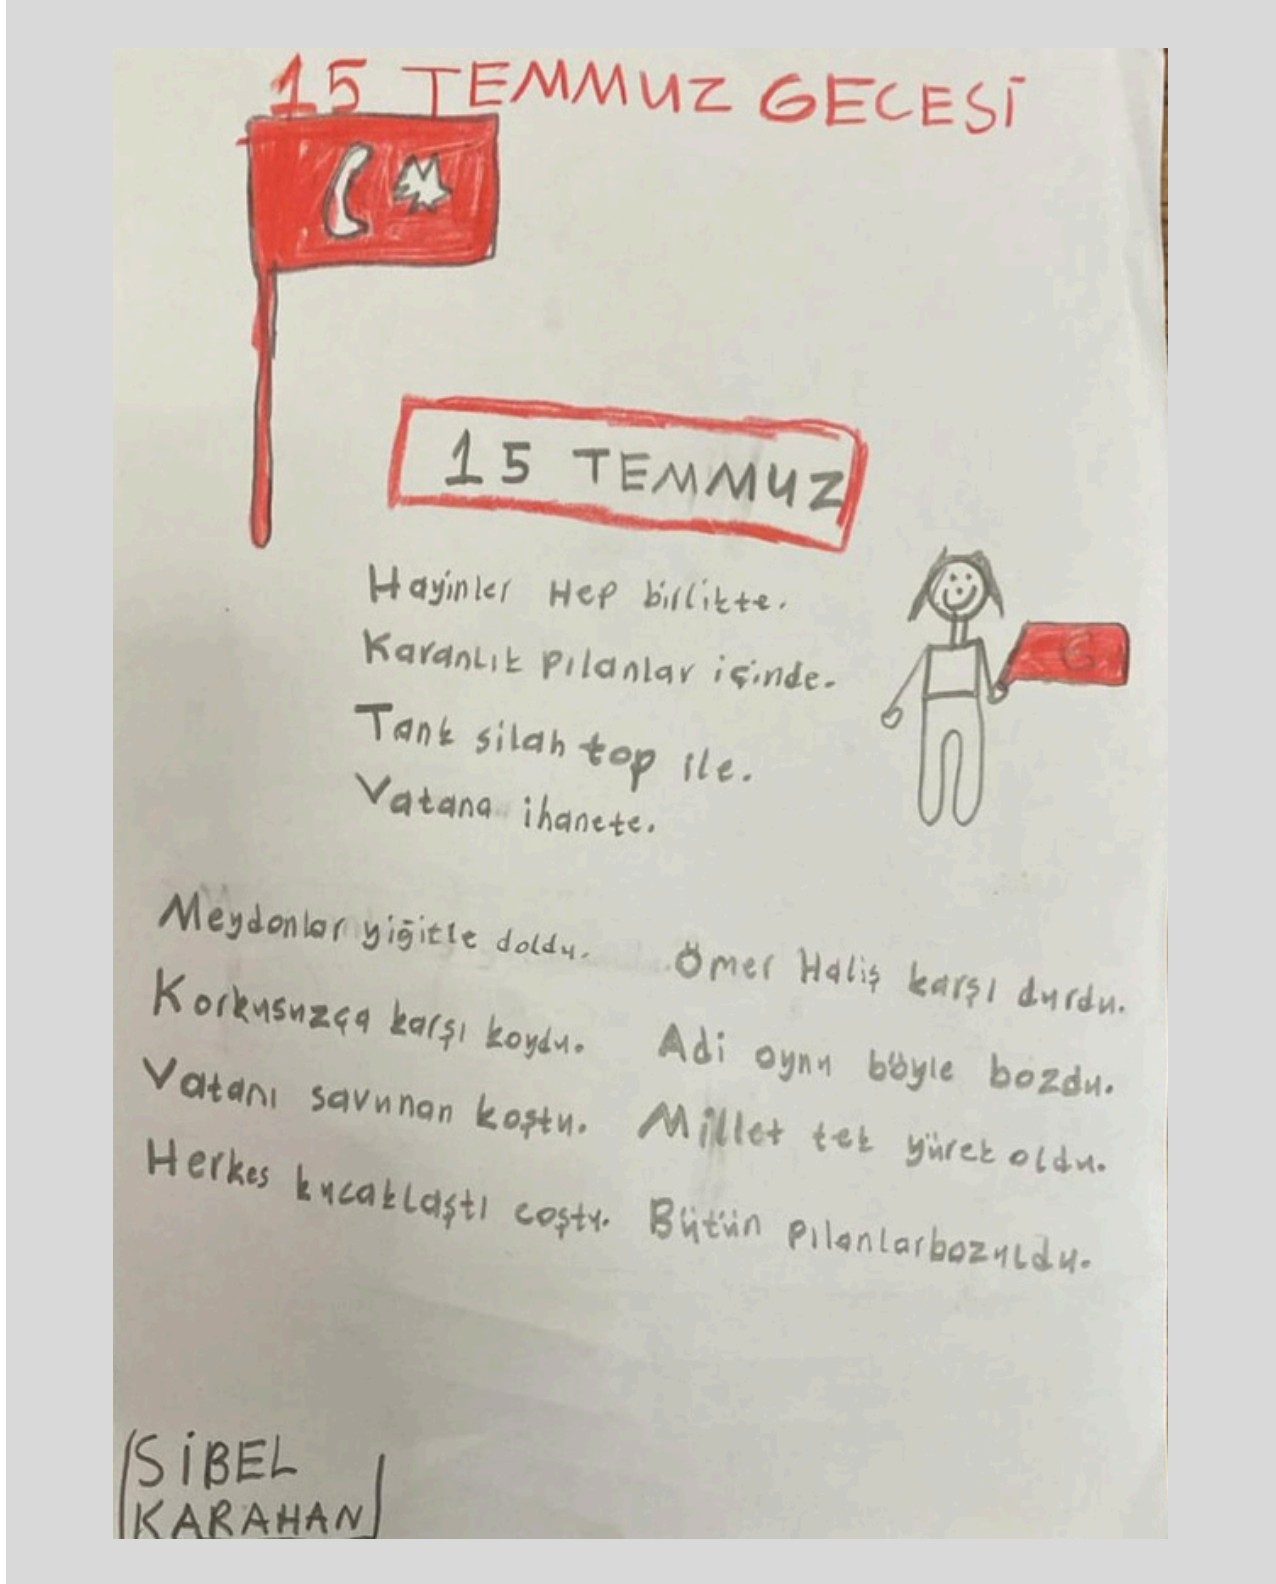 15 TEMMUZ GECESİ
15 TEMMUZ
Hayinler Hep birlikte.
Karanlık pılanlar içinde.
Tank silah top ile.
Vatana ihanete.
Meydonlar yiğitle doldu.
Korkusuzça karşı koydu.
Vatanı savunan koştu.
Herkes kucaklaştı coştu.
Ömer Haliş karşı durdu.
Adi oynu böyle bozdu.
Millet tek yürek oldu.
Bütün pılanlarbozuldu.
SİBEL
KARAHAN